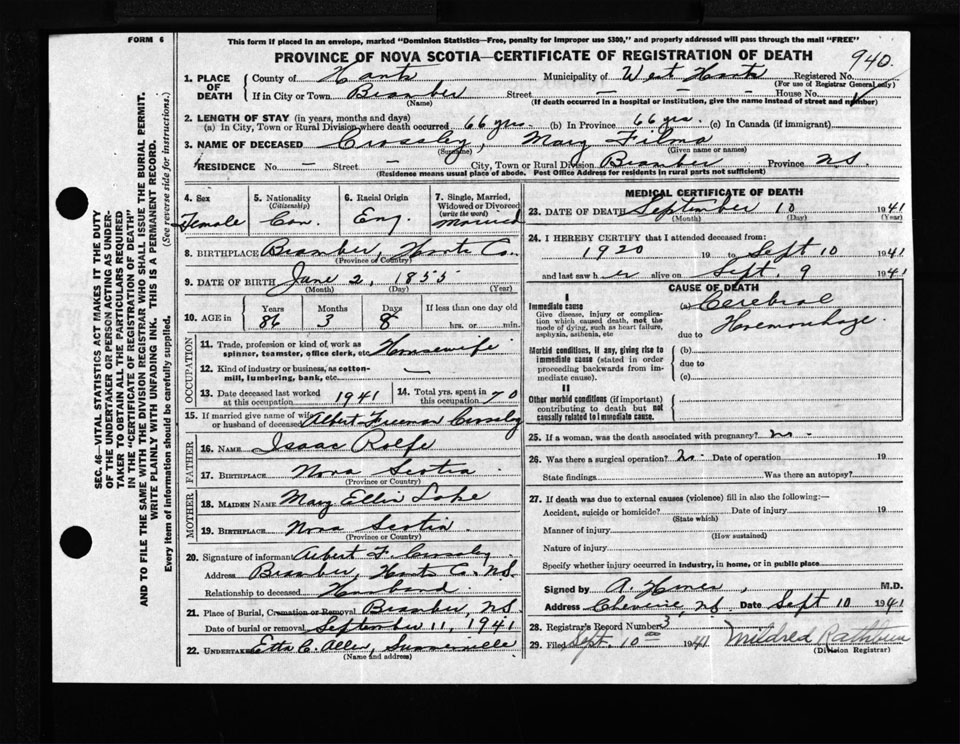 FORM 6
This form if placed in an envelope, marked "Dominion Statistics—Free, penalty for Improper use $300," and properly addressed will pass through the mail "FREE"
PROVINCE OF NOVA SCOTIA—CERTIFICATE OF REGISTRATION OF DEATH
940
1. PLACE OF DEATH
County of Hants Municipality of West Hants Registered No.
(For use of Registrar General only)
If in City or Town Bramber Street — — House No. —
(Name) (If death occurred in a hospital or institution, give the name instead of street and number)
2. LENGTH OF STAY (in years, months and days)
(a) In City, Town or Rural Division where death occurred 66 yrs (b) In Province 66 yrs. (c) In Canada (if immigrant)
3. NAME OF DECEASED Crossley, Mary
(Surname) (Given name or names)
RESIDENCE No. — Street — City, Town or Rural Division Bramber Province N.S.
(Residence means usual place of abode. Post Office Address for residents in rural parts not sufficient)
4. Sex
Female
5. Nationality
(Citizenship)
Can.
6. Racial Origin
Eng.
7. Single, Married, Widowed or Divorced
(write the word)
Married
8. BIRTHPLACE Bramber, Hants Co.
(Province or Country)
9. DATE OF BIRTH June 2, 1855
(Month) (Day) (Year)
10. AGE in
Years Months Days If less than one day old
86 3 8 hrs. or min.
OCCUPATION
11. Trade, profession or kind of work, as spinner, teamster, office clerk, etc. Housewife
12. Kind of industry or business, as cotton-mill, lumbering, bank, etc. —
13. Date deceased last worked at this occupation 1941
14. Total yrs. spent in this occupation 70
15. If married give name of wife or husband of deceased Albert Freeman Crossley
FATHER
16. NAME Isaac Rolfe
17. BIRTHPLACE Nova Scotia
(Province or Country)
MOTHER
18. MAIDEN NAME Mary Ellis Lake
19. BIRTHPLACE Nova Scotia
(Province or Country)
20. Signature of informant Albert F. Crossley
Address Bramber, Hants Co. N.S.
Relationship to deceased Husband
21. Place of Burial, Cremation or Removal Bramber, N.S.
Date of burial or removal September 11, 1941
22. UNDERTAKER Etta C. Allen, Summerville
(Name and address)
MEDICAL CERTIFICATE OF DEATH
23. DATE OF DEATH September 10 1941
(Month) (Day) (Year)
24. I HEREBY CERTIFY that I attended deceased from:
1920 19 to Sept 10 1941
and last saw her alive on Sept. 9 1941
CAUSE OF DEATH
I
Immediate cause
Give disease, injury or complication which caused death, not the mode of dying, such as heart failure, asphyxia, asthenia, etc
(a) Cerebral
due to Haemorrhage
Morbid conditions, if any, giving rise to immediate cause (stated in order proceeding backwards from immediate cause).
(b)
due to
(c)
II
Other morbid conditions (if important) contributing to death but not causally related to immediate cause.
25. If a woman, was the death associated with pregnancy? No.
26. Was there a surgical operation? No. Date of operation 19
State findings Was there an autopsy?
27. If death was due to external causes (violence) fill in also the following:—
Accident, suicide or homicide? Date of injury 19
(State which)
Manner of injury
(How sustained)
Nature of injury
Specify whether injury occurred in industry, in home, or in public place
Signed by M.D.
Address Cheverie N.S. Date Sept 10 1941
28. Registrar's Record Number 3
29. Filed Sept. 10 1941 Mildred Rathbun
(Division Registrar)
SEC. 46—VITAL STATISTICS ACT MAKES IT THE DUTY
OF THE UNDERTAKER OR PERSON ACTING AS UNDER-
TAKER TO OBTAIN ALL THE PARTICULARS REQUIRED
IN THE "CERTIFICATE OF REGISTRATION OF DEATH"
AND TO FILE THE SAME WITH THE DIVISION REGISTRAR WHO SHALL ISSUE THE BURIAL PERMIT.
WRITE PLAINLY WITH UNFADING INK. THIS IS A PERMANENT RECORD.
Every item of information should be carefully supplied. (See reverse side for instructions.)